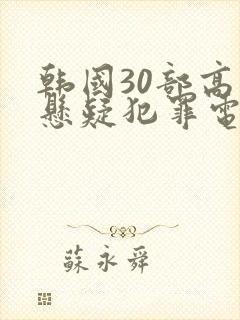 韩国30部高
悬疑犯罪电
苏永舜